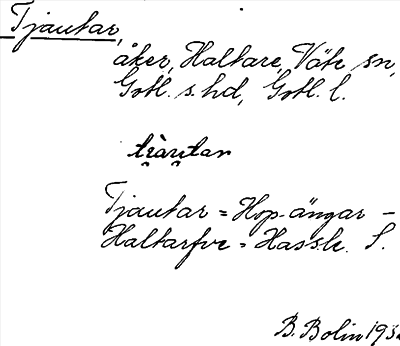 Tjautar,
åker, Haltare, Väte sn,
Gotl. s. hd, Gotl. l.
Tjautar = Hop-ängar -
Haltarfve = Hassle S.
B. Bolin 193